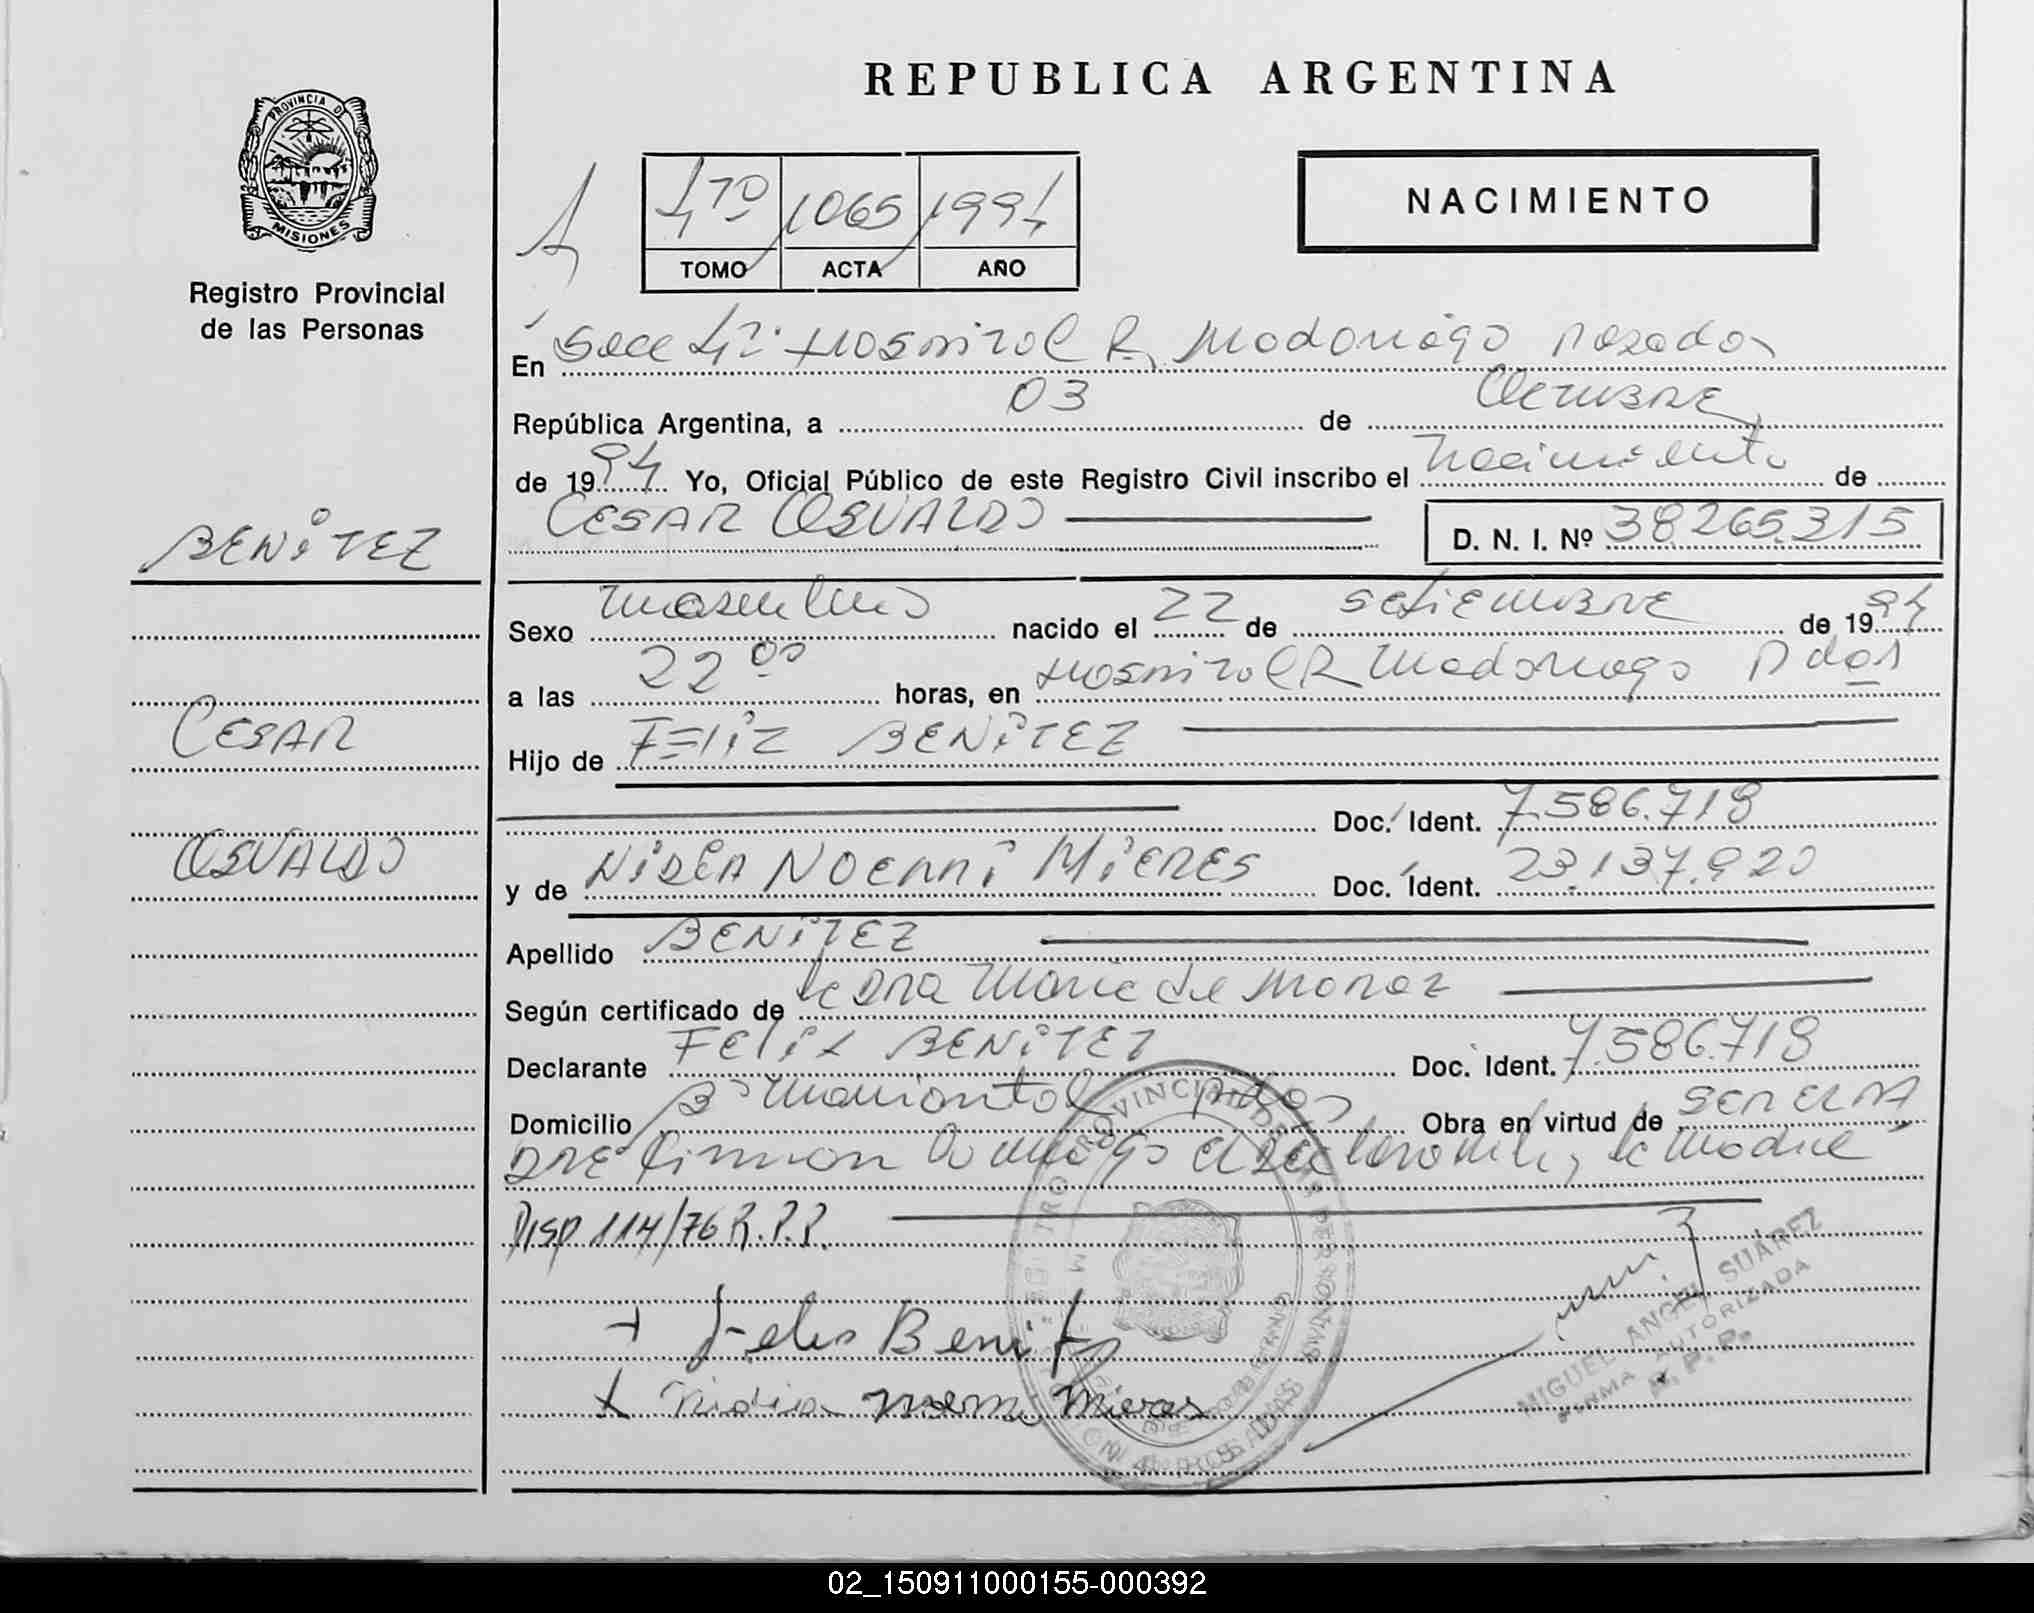 REPUBLICA ARGENTINA
PROVINCIA DE
MISIONES
Registro Provincial
de las Personas
NACIMIENTO
4 4to 1065 1994
TOMO ACTA AÑO
En Secc 4ta Hospital R. Madariaga Posadas
República Argentina, a 03 de Octubre
de 1994 Yo, Oficial Público de este Registro Civil inscribo el nacimiento de
CESAR OSVALDO D. N. I. Nº 38.265.315
BENiTEZ
CESAR
OSVALDO
Sexo masculino nacido el 22 de setiembre de 1994
a las 22 00 horas, en Hospital R Madariaga Pdas
Hijo de FEliZ BENiTEZ
Doc. Ident. 7.586.718
y de NiDIA NOEMi MiERES Doc. Ident. 23.137.920
Apellido BENiTEZ
Según certificado de la Dra Maria de
Declarante FEliX BENiTEZ Doc. Ident. 7.586.718
Domicilio Bº Manantial Pdas Obra en virtud de SER EL PA
DRE firman conmigo el declarante, la madre
DISP 114/76 R.P.P.
+ Felix Benitez
x Nidia Noemi Mieres
MIGUEL ANGEL SUÁREZ
FIRMA AUTORIZADA
R. P. P.
02_150911000155-000392